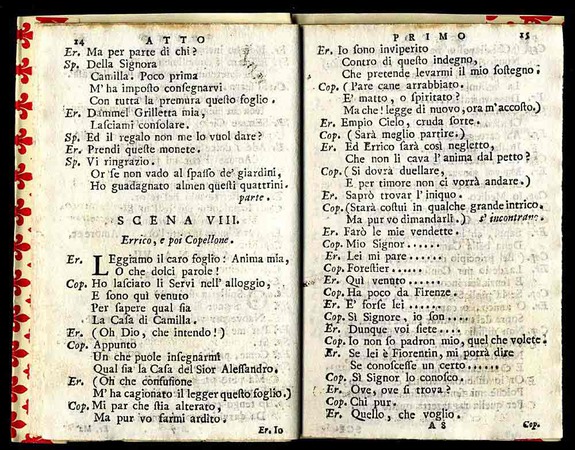 14 ATTO
Er. Ma per parte di chi?
Sp. Della Signora
Camilla. Poco prima
M'ha imposto consegnarvi
Con tutta la premura questo foglio.
Er. Dammel Grilletta mia,
Lasciami consolare.
Sp. Ed il regalo non me lo vuol dare?
Er. Prendi queste monete.
Sp. Vi ringrazio.
Or se non vado al spasso de' giardini,
Ho guadagnato almen questi quattrini.
parte.
SCENA VIII.
Errico, e poi Copellone.
Er. LEggiamo il caro foglio: Anima mia,
O che dolci parole!
Cop. Ho lasciato li Servi nell' alloggio,
E sono quì venuto
Per sapere qual sia
La Casa di Camilla.
Er. (Oh Dio, che intendo!)
Cop. Appunto
Un che puole insegnarmi
Qual sia la Casa del Sior Alessandro.
Er. (Oh che confusione
M'ha cagionato il legger questo foglio.)
Cop. Mi par che stia alterato,
Ma pur vo farmi ardito.
Er. Io
PRIMO 15
Er. Io sono inviperito
Contro di questo indegno,
Che pretende levarmi il mio sostegno.
Cop. (Pare cane arrabbiato.
E' matto, o spiritato?
Ma che! legge di nuovo, ora m'accosto.)
Er. Empio Cielo, cruda sorte.
Cop. (Sarà meglio partire.)
Er. Ed Errico sarà così negletto,
Che non li cava l'anima dal petto?
Cop. (Si dovrà duellare,
E per timore non ci vorrà andare.)
Er. Saprò trovar l'iniquo.
Cop. (Starà costui in qualche grande intrico.
Ma pur vo dimandarli.) s'incontrano.
Er. Farò le mie vendette.
Cop. Mio Signor......
Er. Lei mi pare......
Cop. Forestier......
Er. Quì venuto......
Cop. Ha poco da Firenze.
Er. E' forse lei.....
Cop. Sì Signore, io son....
Er. Dunque voi siete....
Cop. Io non so padron mio, quel che volete.
Er. Se lei è Fiorentin, mi potrà dire
Se conoscesse un certo......
Cop. Sì Signor lo conosco.
Er. Ove, ove si trova?
Cop. Chi pur.
Er. Quello, che voglio.
A 8 Cop.